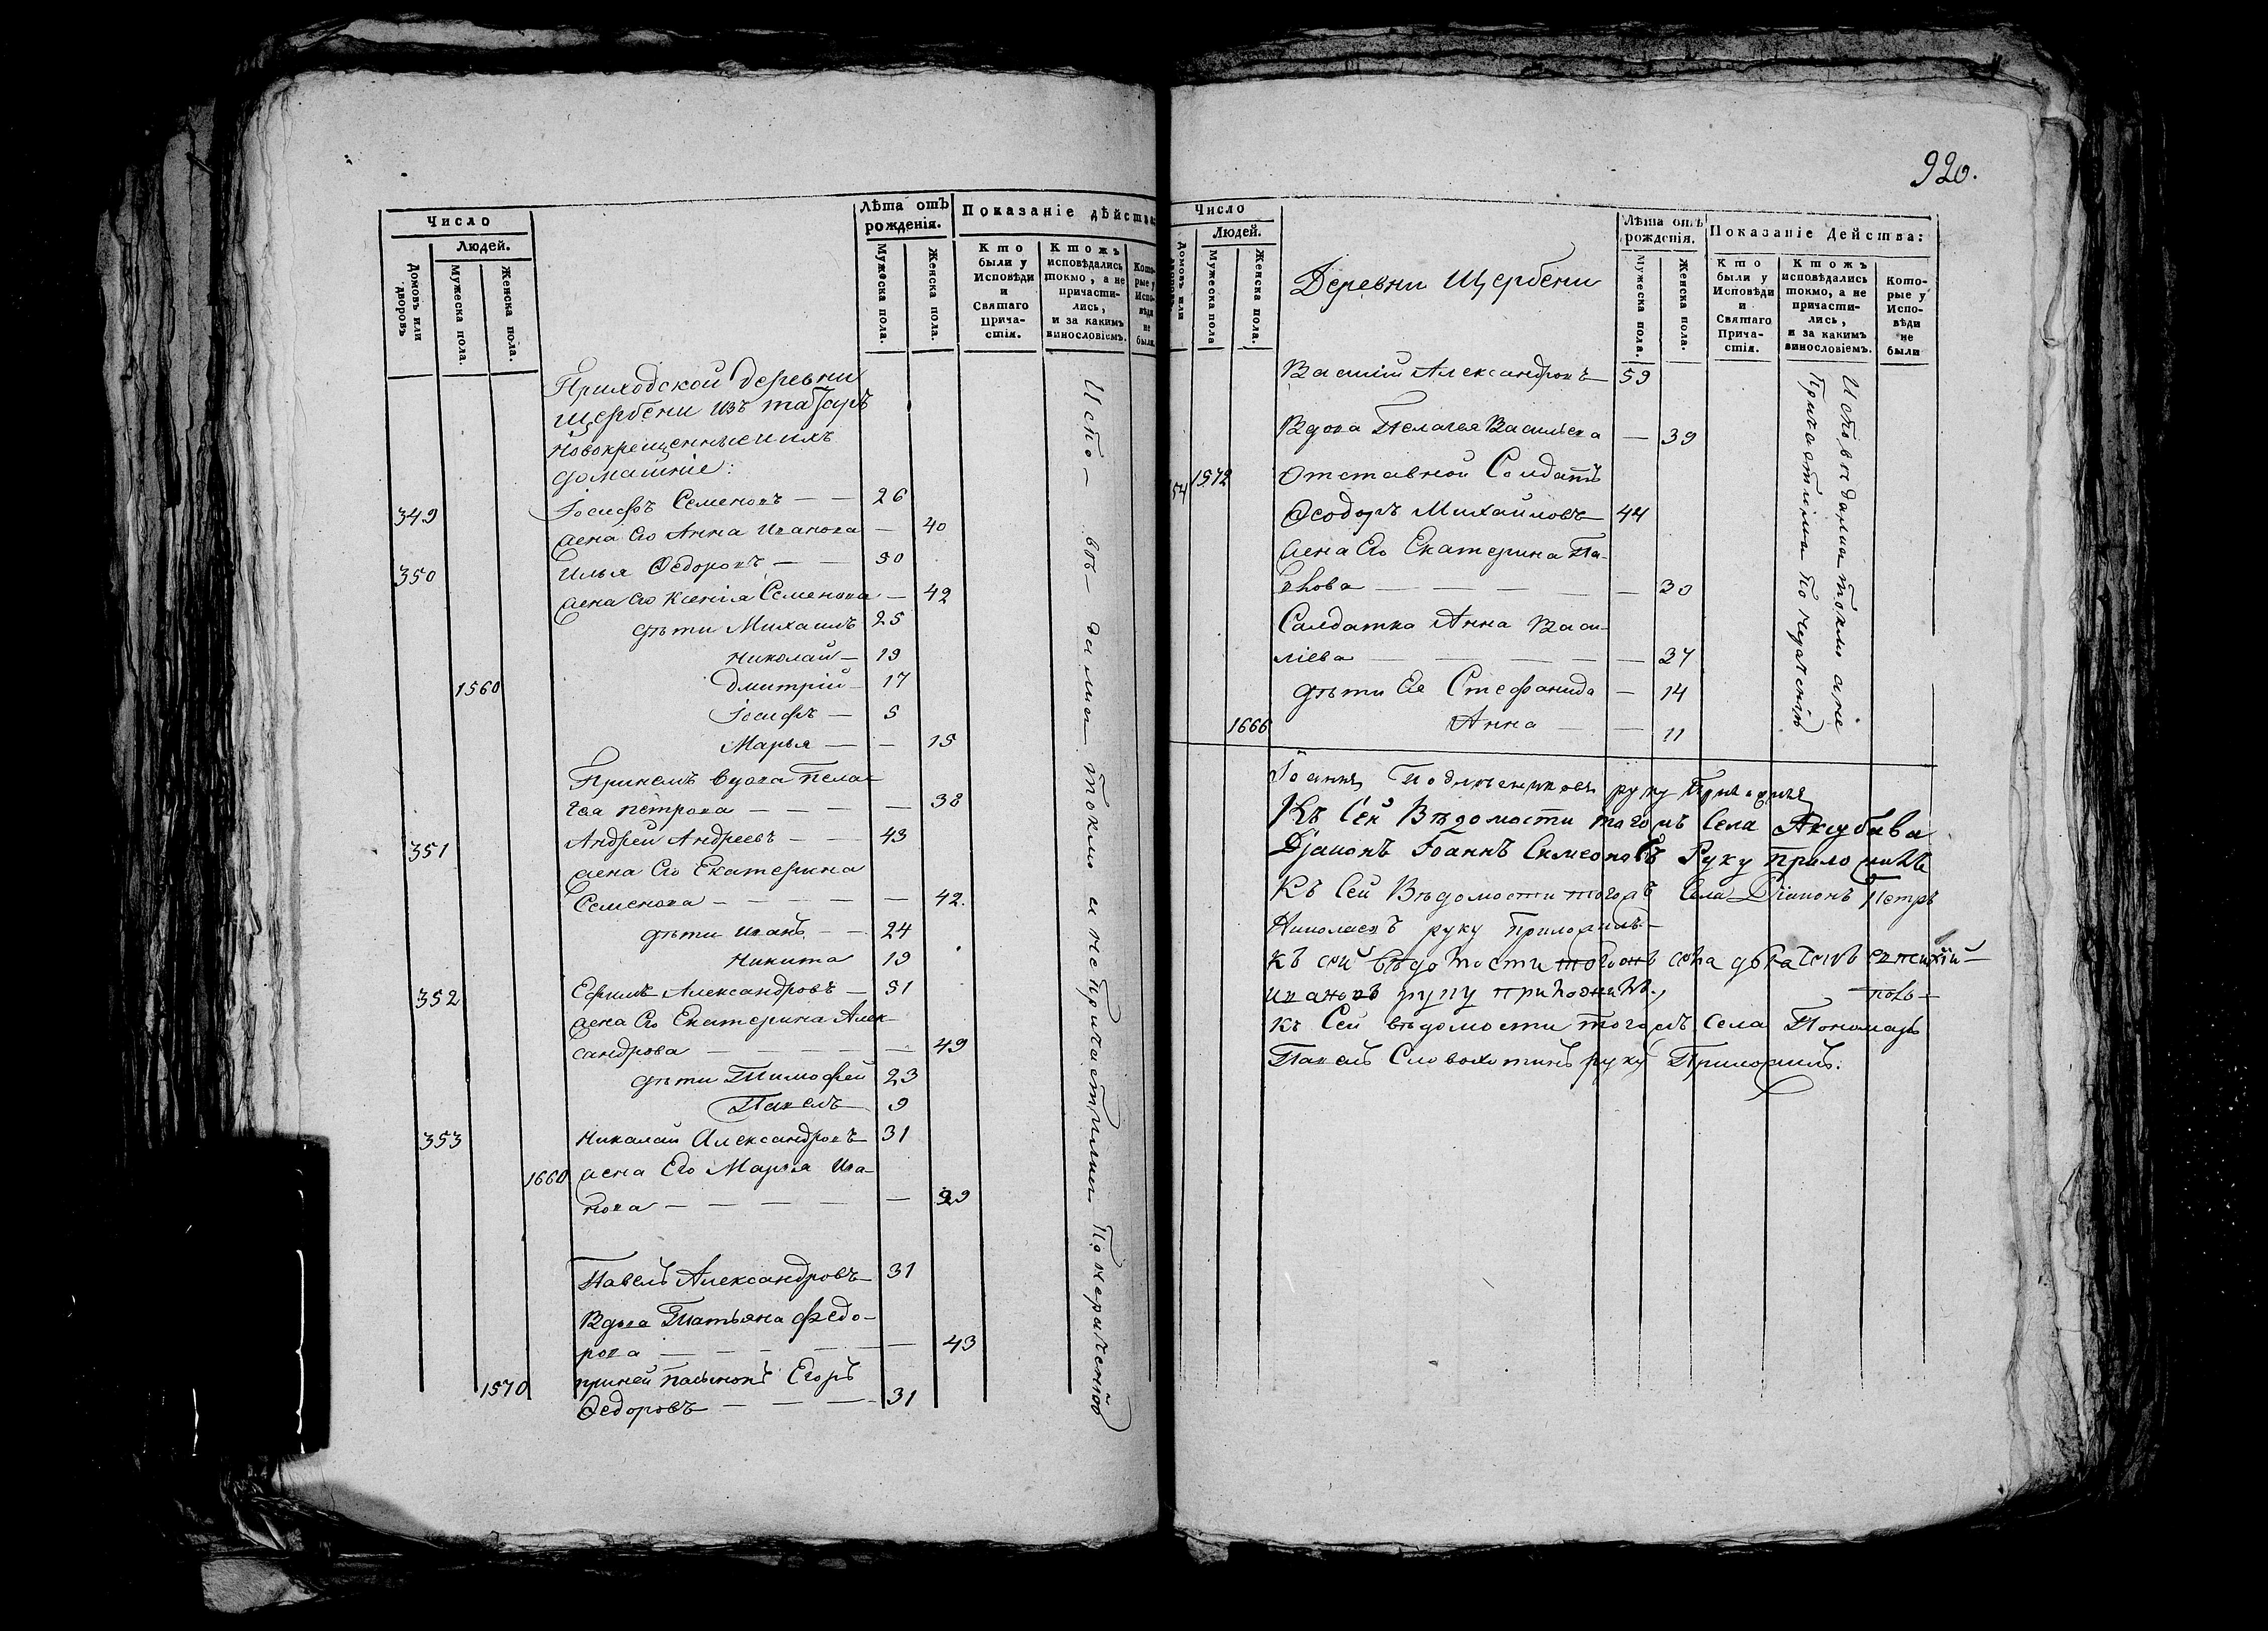 Число
Людей.
Домовъ или дворовъ
Мужеска пола.
Женска пола.
Лѣта отъ рожденія.
Мужеска пола.
Женска пола.
Показаніе дѣйства
Кто были у Исповѣди и Святаго Прича-стія.
Ктожъ исповѣдались токмо, а не причасти-лись, и за какимъ винословіемъ.
Кото-рые у Испо-вѣди не были.
Приходской деревни
Щербени изъ татаръ
новокрещенные и ихъ
домашніе:
349 Іосифъ Семеновъ — — 26
жена Его Анна Иванова — 40
350 Илья Ѳедоровъ — — 50
жена Его Ксенія Семенова — 42
дѣти Михаилъ 25
Николай — 19
1560 Дмитрій — 17
Іосифъ — 5
Марья — — 15
При немъ вдова Пела-
гея Петрова — — — — 38
351 Андрей Андреевъ — — 43
жена Его Екатерина
Семенова — — — — — 42.
дѣти Иванъ — — 24
Никита 19
352 Ефимъ Александровъ — 51
жена Его Екатерина Алек-
сандрова — — — — — 49
дѣти Тимофей 23
Павелъ — 9
353 Николай Александровъ — 31
1660 жена Его Марья Ива-
нова — — — — — 29
Павелъ Александровъ — 31
Вдова Татьяна Федо-
рова — — — — — 43
1570 при ней пасынокъ Егоръ
Ѳедоровъ — — — — 31
Испо — вѣ — дались токмо и не причастились по нерачению
920.
Число
Людей.
Домовъ или дворовъ
Мужеска пола
Женска пола.
Деревни Щербени
Лѣта отъ рожденія.
Мужеска пола.
Женска пола.
Показаніе Действа:
Кто были у Исповѣди и Святаго Прича-стія.
Ктожъ исповѣдались токмо, а не причасти-лись, и за какимъ винословіемъ.
Кото-рые у Испо-вѣди не были
Василій Александровъ — 59
Вдова Пелагея Васильева — 39
1572 Отставной Солдатъ
Ѳеодоръ Михайловъ — 44
жена Его Екатерина Па-
влова — — — — — 30
Салдатка Анна Васи-
ліева — — — — — 37
дѣти Ея Стефанида — 14
1666 Анна — — 11
Исповѣдались токмо а не
Причастились по нерачению
Іоаннъ руку приложилъ
Къ Сей Вѣдомости тогожъ Села Акзубева
Діаконъ Іоаннъ Симеоновъ Руку приложилъ
Къ Сей Вѣдомости тогожъ Села Діаконъ Петръ
Николаевъ руку приложилъ —
къ сей вѣдомости тогожъ села дьячокъ
ивановъ руку приложилъ.,
къ Сей вѣдомости тогожъ села Пономарь
Павелъ Словохотинъ руку Приложилъ: